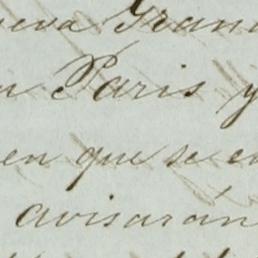 ueva Grana
n Paris y
en que se en
avisaran